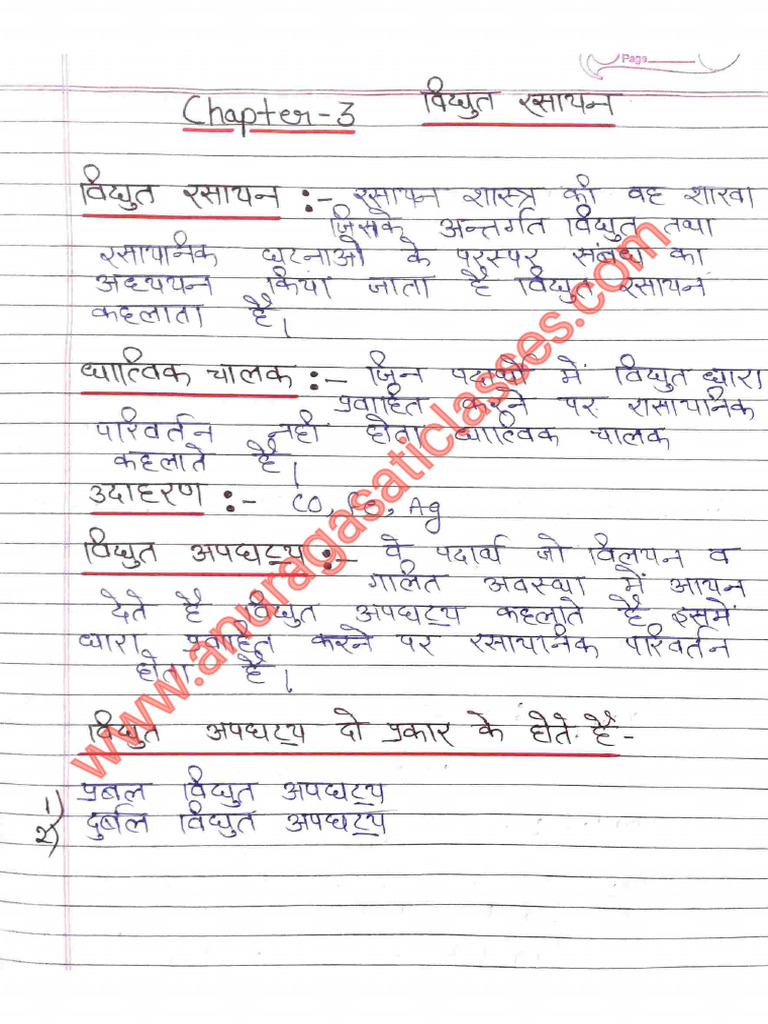 Page
Chapter-3 विद्युत रसायन
विद्युत रसायन :- रसायन शास्त्र की वह शाखा
जिसके अन्तर्गत विद्युत तथा
रसायनिक घटनाओ के परस्पर संबंध का
अध्ययन किया जाता है विद्युत रसायन
कहलाता है।
धात्विक चालक :- जिन पदार्थो में विद्युत धारा
प्रवाहित करने पर रासायनिक
परिवर्तन नही होता धात्विक चालक
कहलाते है।
उदाहरण :- CO, Fe, Ag
विद्युत अपघट्य :- वे पदार्थ जो विलयन व
गलित अवस्था में आयन
देते है विद्युत अपघट्य कहलाते है इसमें
धारा प्रवाहित करने पर रसायनिक परिवर्तन
होता है।
विद्युत अपघट्य दो प्रकार के होते है -
1) प्रबल विद्युत अपघट्य
2) दुर्बल विद्युत अपघट्य
www.anuragasaticlasses.com